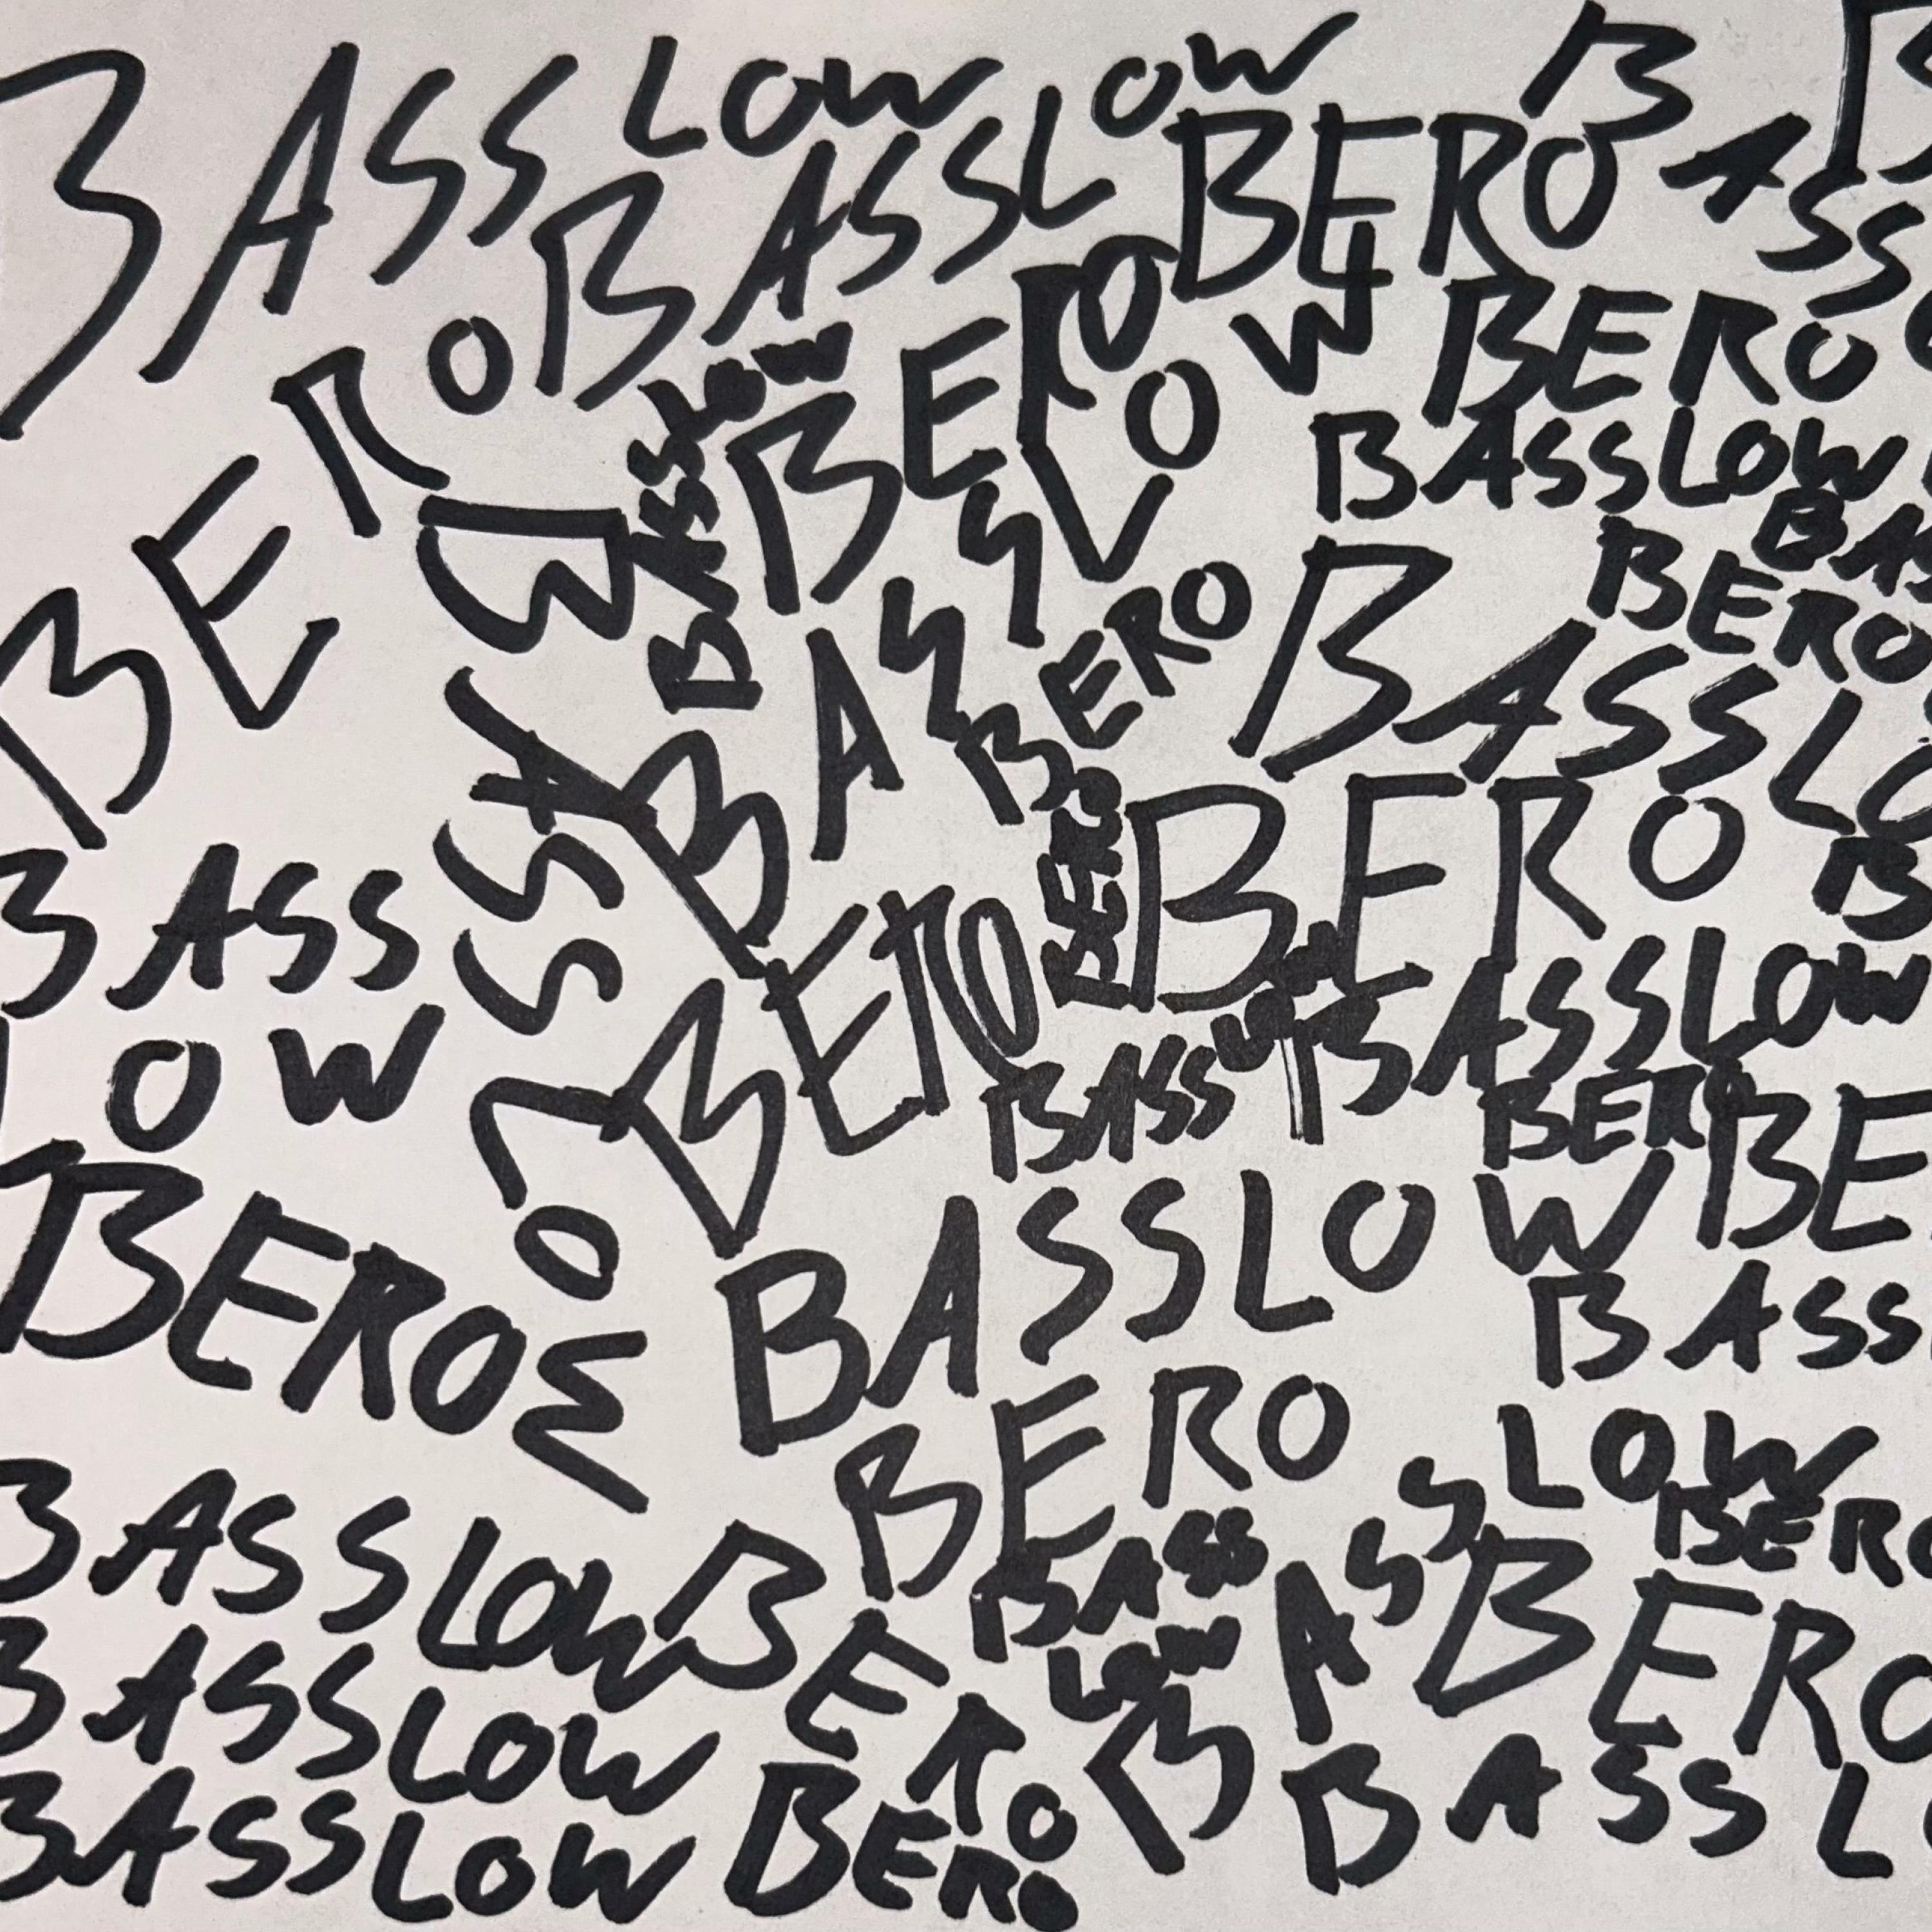 BASS LOW
BASSLOW
BERO
BASS
BERO
BASSLOW
BERO
BERO
BASSLOW
BASSLOW
BERO
BASSLOW
BERO
BAS
BERO
BASSLO
BERO
BERO
BASSLOW
B
BASS
LOW
BERO
BASSLOW
BASSLOW
BERO
BE
BERO
BASSLOW
BASS
LOW
BERO
BERO
BASSLOW
BASS
LOW
BASS
BERO
BERO
BASSLOW
BASSL
BASSLOW
BERO